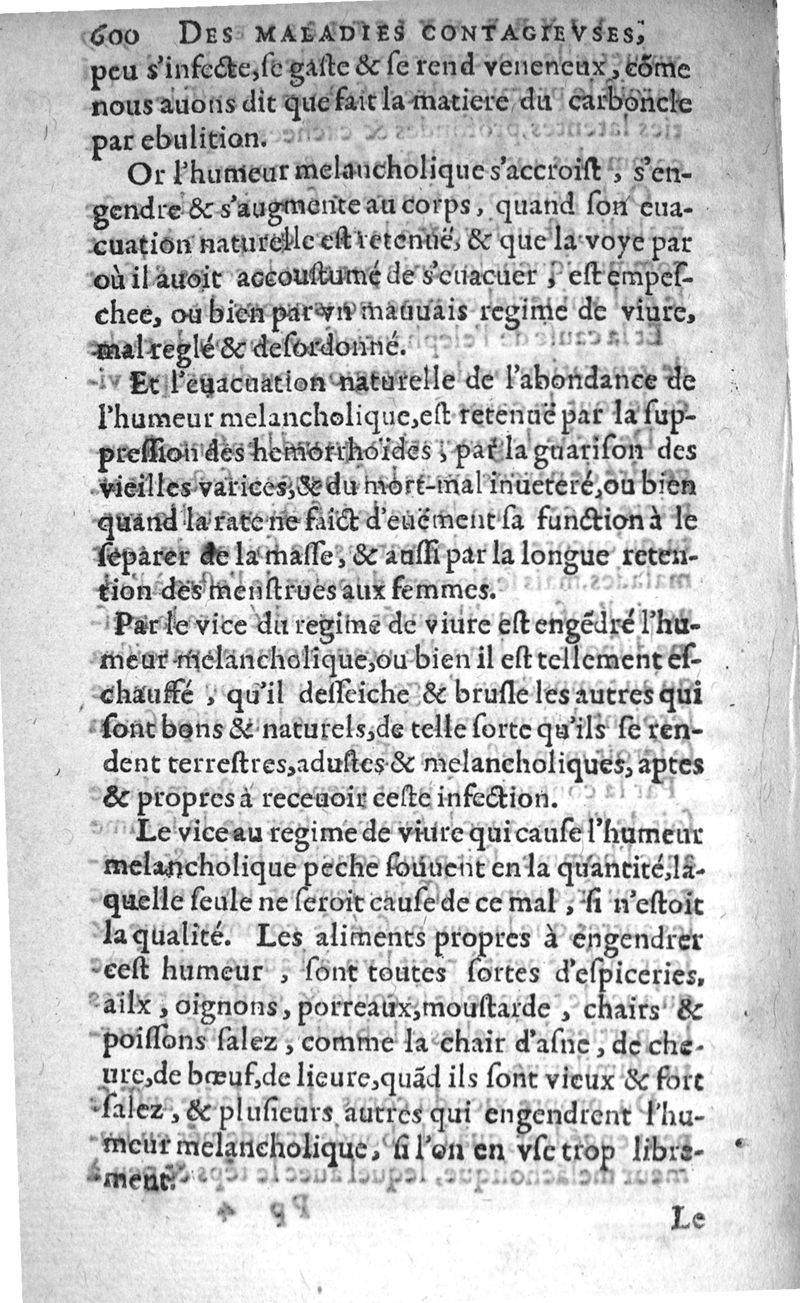 600 DES MALADIES CONTAGIEVSES,
peu s'infecte,se gaste & se rend veneneux, cõme
nous auons dit que fait la matiere du carboncle
par ebulition.
Or l'humeur melancholique s'accroist, s'en-
gendre & s'augmente au corps, quand son eua-
cuation naturelle est retenuë, & que la voye par
où il auoit accoustumé de s'euacuer, est empes-
chee, ou bien par vn mauuais regime de viure,
mal reglé & desordonné.
Et l'euacuation naturelle de l'abondance de
l'humeur melancholique,est retenuë par la sup-
pression des hemorrhoïdes, par la guarison des
vieilles varices,& du mort-mal inueteré,ou bien
quand la rate ne faict d'euëment sa function à le
separer de la masse, & aussi par la longue reten-
tion des menstrues aux femmes.
Par le vice du regime de viure est engẽdré l'hu-
meur melancholique,ou bien il est tellement es-
chauffé, qu'il desseiche & brusle les autres qui
sont bons & naturels,de telle sorte qu'ils se ren-
dent terrestres,adustes & melancholiques, aptes
& propres à receuoir ceste infection.
Le vice au regime de viure qui cause l'humeur
melancholique peche souuent en la quantité,la-
quelle seule ne seroit cause de ce mal, si n'estoit
la qualité. Les aliments propres à engendrer
cest humeur, sont toutes sortes d'espiceries,
ailx, oignons, porreaux,moustarde, chairs &
poissons salez, comme la chair d'asne, de che-
ure,de bœuf,de lieure,quãd ils sont vieux & fort
salez, & plusieurs autres qui engendrent l'hu-
meur melancholique, si l'on en vse trop libre-
ment.
Le